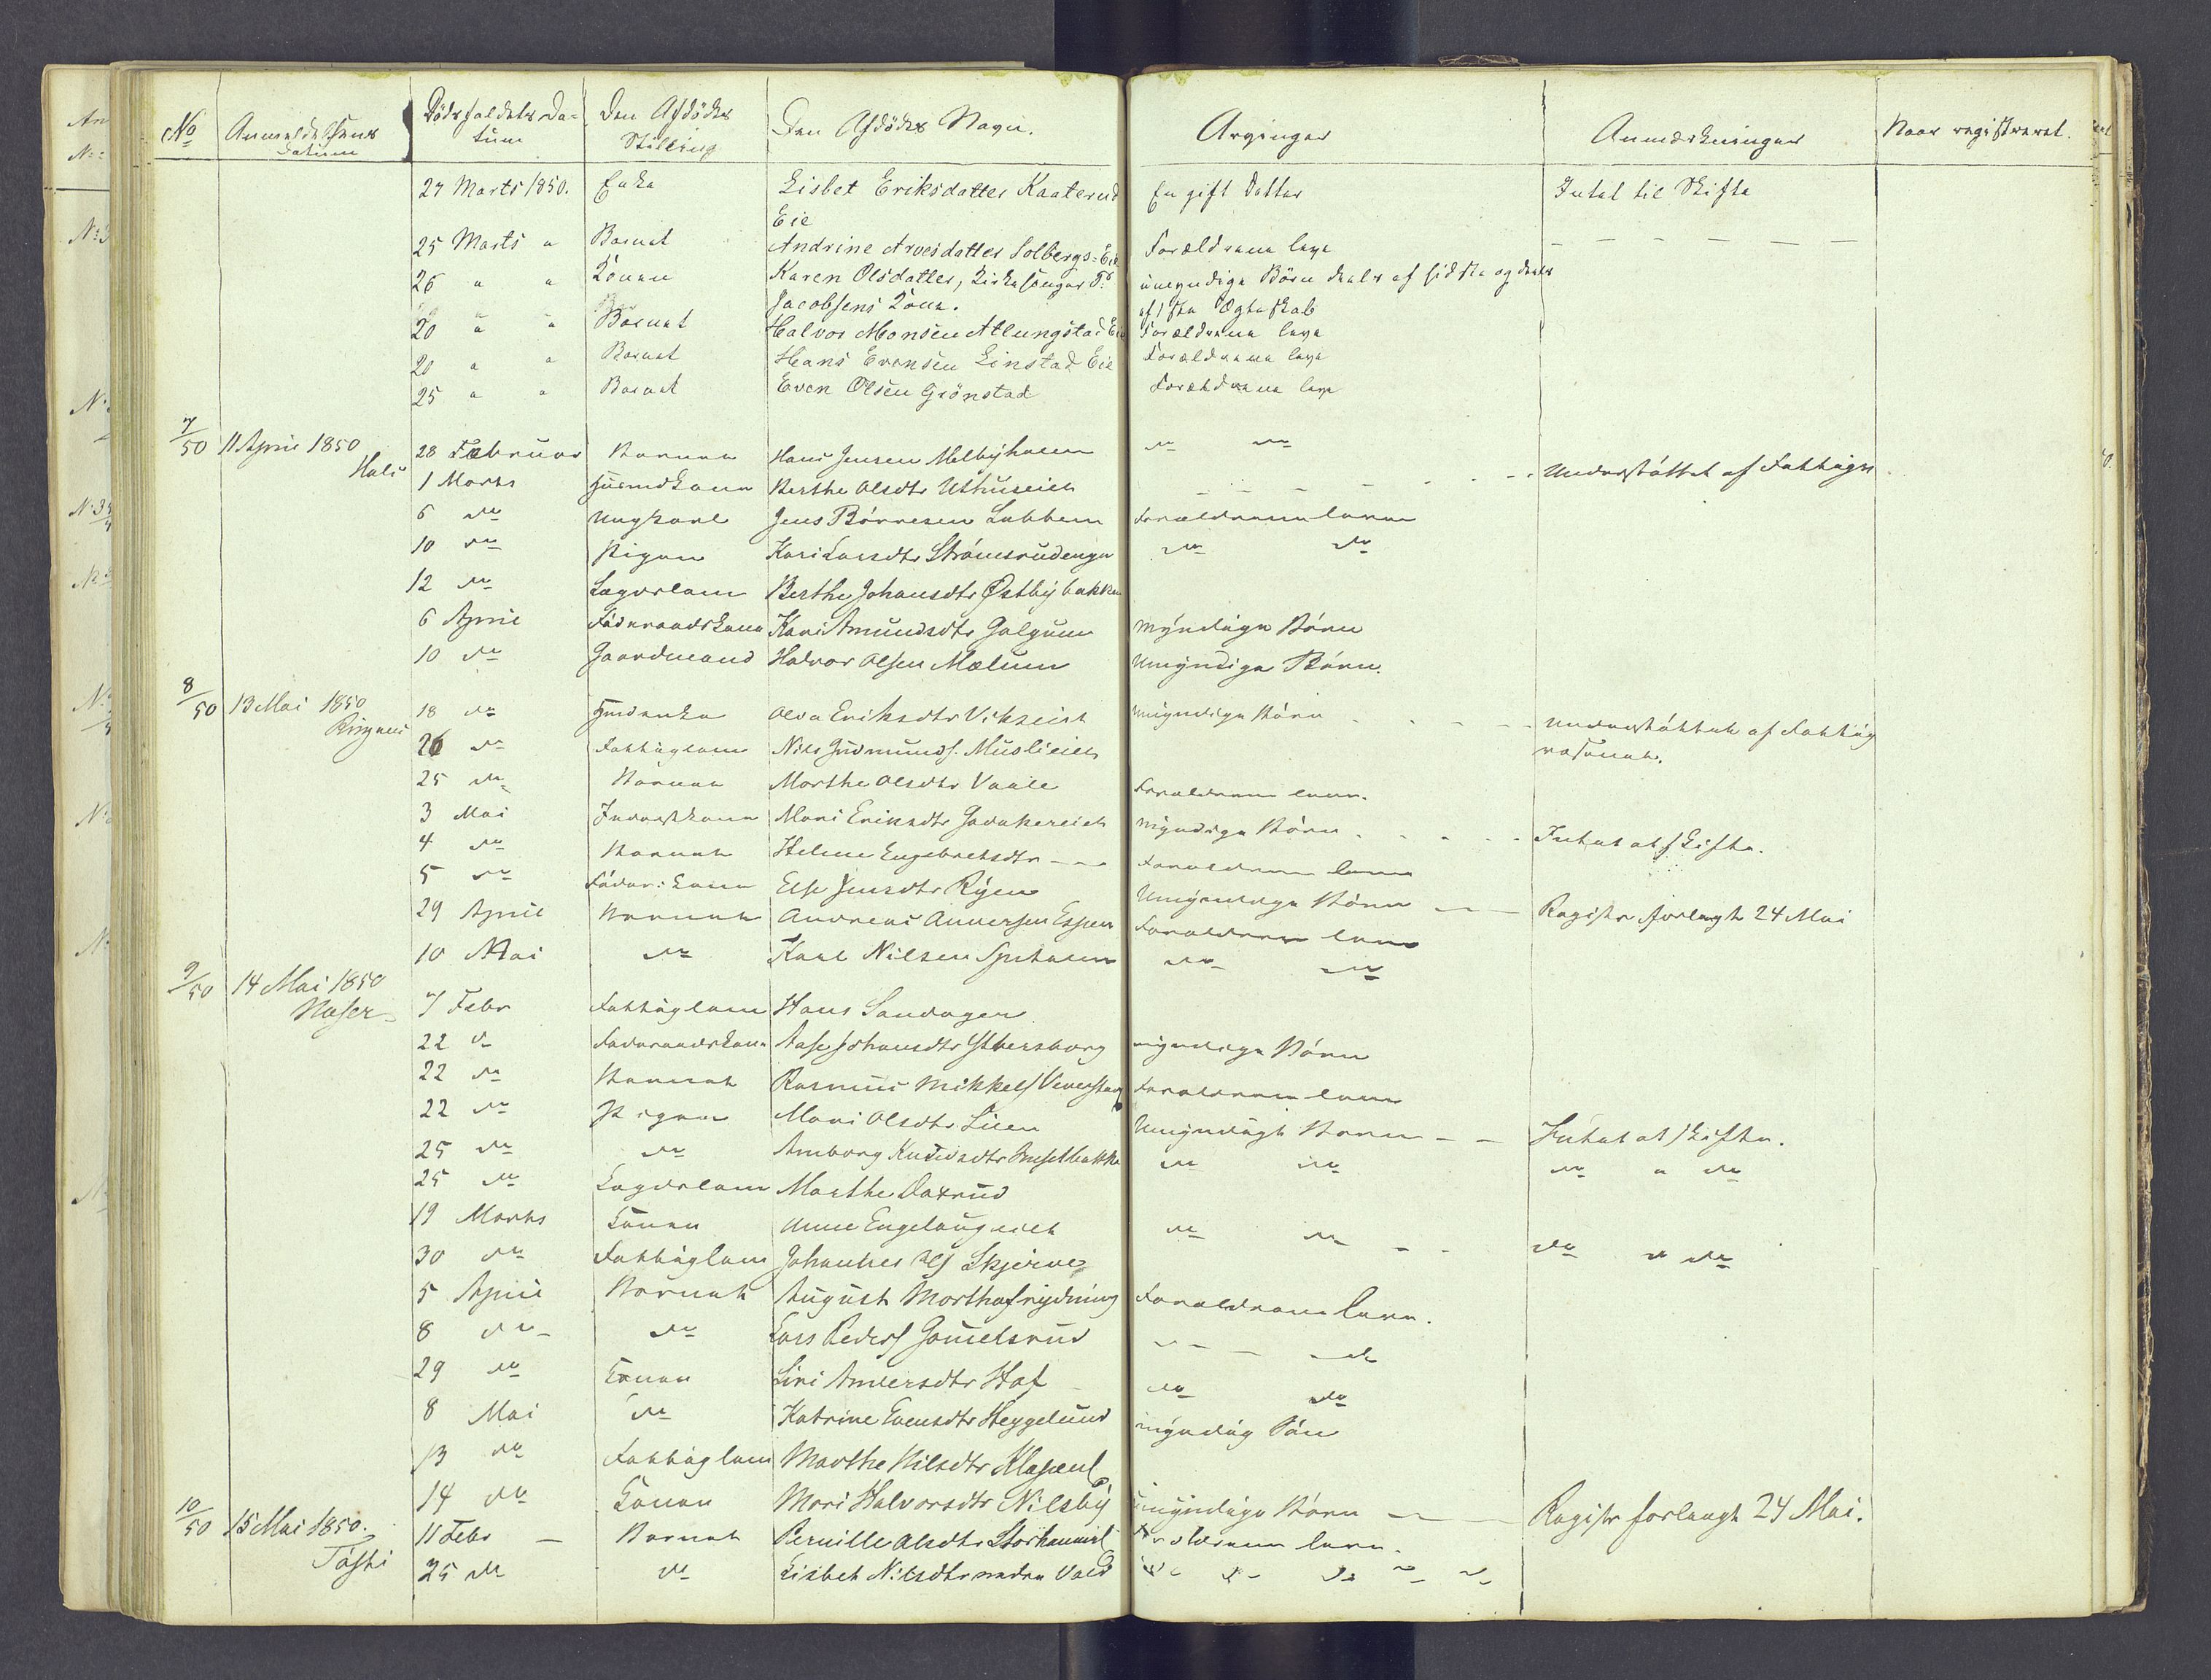 No Anmeldelsens Datum Dödsfaldets Datum Den Afdödes Stilling Den Afdödes Navn. Arvinger Anmærkninger Naar registreret.
27 Marts 1850. Enke Lisbet Eriksdatter Kaaterud Eie En gift Datter Intet til Skifte
25 Marts " Barnet Andrine Arvesdatter Solbergs-Eie Forældrene leve
26 " " Konen Karen Olsdatter, Kirkesanger P. Jacobsens Kone. umyndige Börn deels af sidste og deels af 1ste Ægteskab
20 " " Barnet Halvor Monsen Atlungstad Eie Forældrene leve
20 " " Barnet Hans Evensen Linstad Eie Forældrene leve
25 " " Barnet Even Olsen Grönstad Forældrene leve
7/50 11 April 1850 Hals 28 Februar Barnet Hans Jensen Melbyholm do do
1 Marts Huusmdkone Berthe Olsdtr Uthuseiet - - - Understöttet af Fattigv
6 do Ungkarl Jens Börresen Lubben Forældrene lever
10 do Pigen Kari Larsdtr Strömsrudengen do do
12 do Lægdslem Berthe Johansdtr Østbybakken
6 April Föderaadskone Kari Amundsdtr Galgum Myndige Börn
10 do Gaardmand Halvor Olsen Mælum Umyndige Börn.
8/50 13 Mai 1850 Ringnes 18 do Husmdenke Olea Eriksdtr Vikseiet Umyndige Börn - - - Understöttet af Fattigvæsenet.
26 do Fattiglem Nils Gudmunds. Muslieiet
25 do Barnet Marthe Olsdtr Vaale Forældrene lever.
3 Mai Inderstkone Mari Eriksdtr Gaukereiet Myndige Börn - - - Intet at skifte.
4 do Barnet Helene Engebretsdtr - - Forældrene lever
5 do Föder: kone Else Jensdtr Ryen Umyndige Börn - - Registr forlangt 24 Mai
29 April Barnet Andreas Andersen Espen Forældrene lever
10 Mai do Karl Nilsen do do
9/50 14 Mai 1850 7 Febr Fattiglem Hans Sandager
22 do Föderaadskone Aase Johansdtr myndige Börn
22 do Barnet Rasmus Mikkels Forældrene lever
22 do Pigen Mari Olsdtr Lien Umyndigt Barn - - Intet at skifte.
25 do do Amborg Knudsdtr do do do " do
25 do Lægdslem Marthe Daxrud
19 Marts Konen Anne Engelaugeiet do do - - do " do
30 do Fattiglem Johannes Ols Skjerve
5 April Barnet August Forældrene lever.
8 do do Lars Peders Gamelsrud - - - do
29 do Konen Siri Andersdtr Hof do do
8 Mai do Katrine Evensdtr Heggelund myndig Sön
13 do Fattiglem Marthe Nilsdtr
14 do Konen Mari Halvorsdtr Nilsby umyndige Börn - - Registr forlangt 24 Mai.
10/50 15 Mai 1850. Tøsti 11 Febr - Barnet Pernille Olsdtr Storhammer Forældrene lever.
25 do do Lisbet Nilsdtr nedre Vold do do do